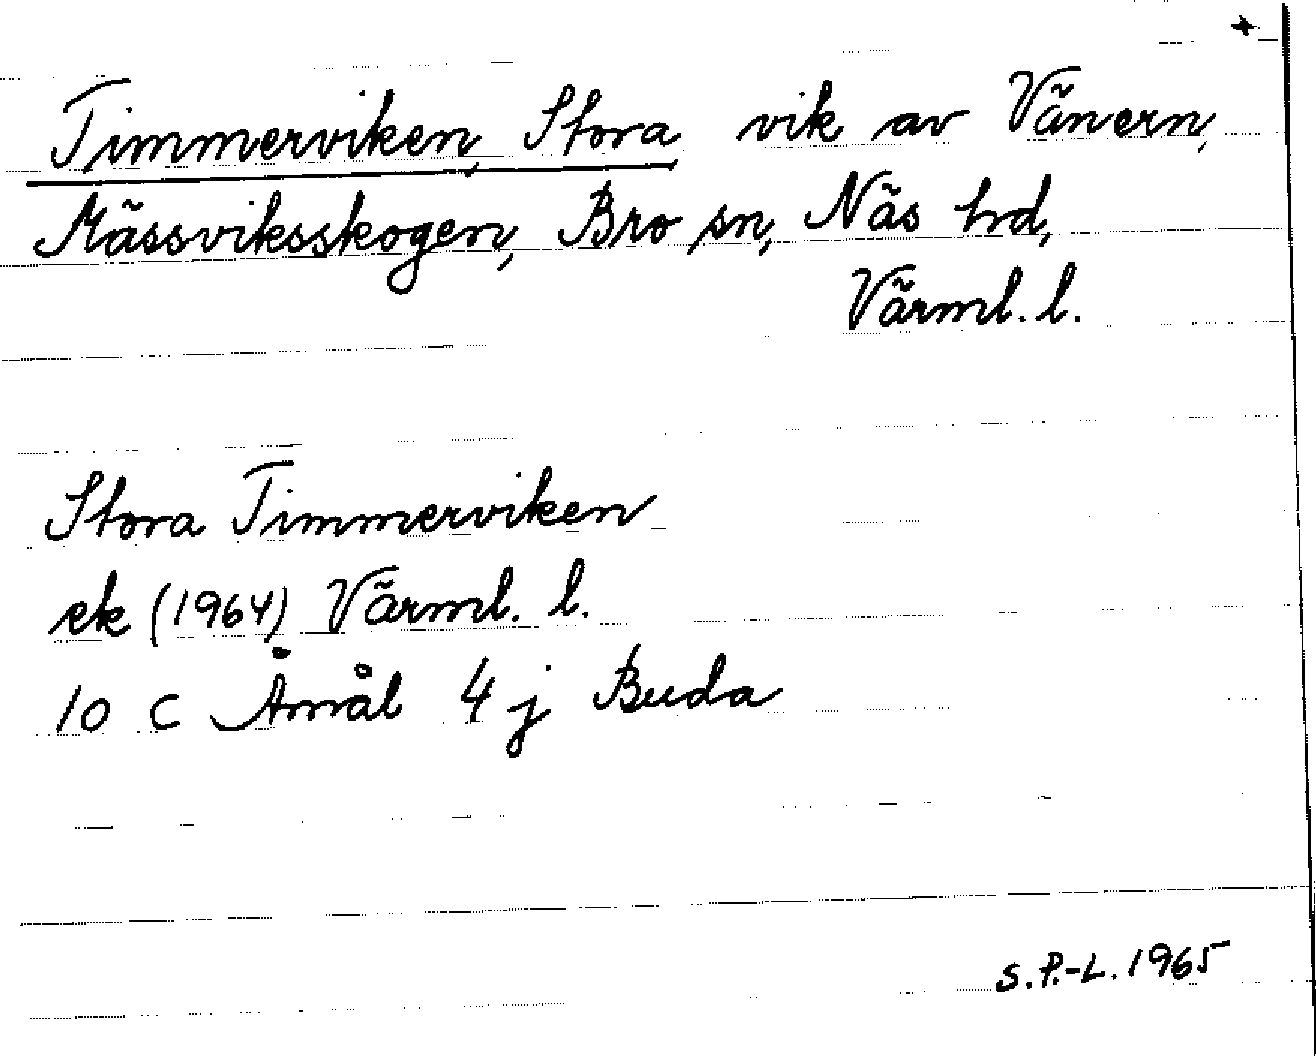 +
Timmerviken, Stora, vik av Vänern,
Mässviksskogen, Bro sn, Näs hd,
Värml. l.
Stora Timmerviken
ek (1964) Värml. l.
10 C Åmål 4 j Buda
S.P.-L. 1965